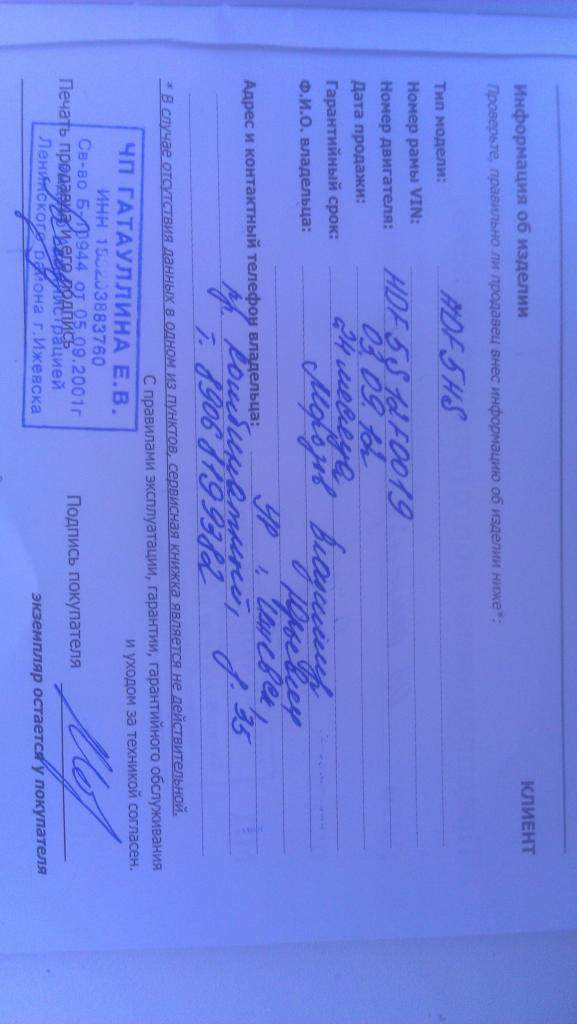 Информация об изделии
КЛИЕНТ
Проверьте, правильно ли продавец внес информацию об изделии ниже*:
Тип модели: HDF5HS
Номер рамы VIN:
Номер двигателя:
Дата продажи: 03.09.12
Гарантийный срок: 24 месяца
Ф.И.О. владельца: Морозов Владимир
Юрьевич
Адрес и контактный телефон владельца: УР, г. Ижевск,
д. 35
т. 89068199382
* В случае отсутствия данных в одном из пунктов, сервисная книжка является не действительной.
С правилами эксплуатации, гарантии, гарантийного обслуживания
и уходом за техникой согласен.
ЧП ГАТАУЛЛИНА Е.В.
ИНН
Св-во 944 от 05.09.2001г
Ленинского района г.Ижевска
Печать продавца и его подпись
Подпись покупателя
экземпляр остается у покупателя